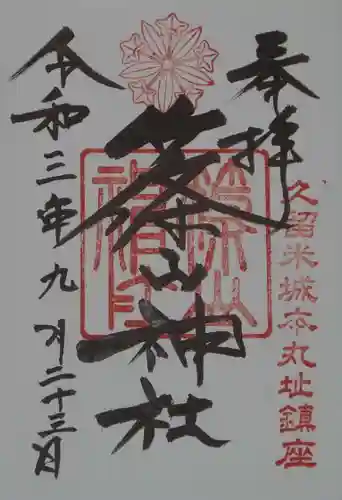 奉拝
久留米城本丸址鎮座
篠山神社
令和三年九月二十三日